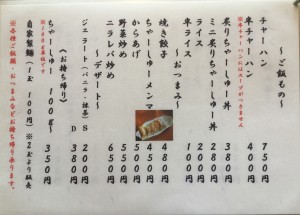 ～ご飯もの～
チャーハン 750円
半チャーハン 400円
※半チャーハンにはスープがつきません
炙りちゃーしゅー丼 380円
ミニ炙りちゃーしゅー丼 280円
ライス 200円
半ライス 100円
～おつまみ～
焼き餃子 480円
ちゃーしゅーメンマ 450円
からあげ 550円
野菜炒め 600円
ニラレバ炒め 650円
～デザート～
ジェラート（バニラ・抹茶）S 200円
D 380円
《お持ち帰り》
ちゃーしゅー 100g～ 350円
自家製麺（1玉 100円）※2玉より販売
※各種ご飯類・おつまみなどお持ち帰り承ります。